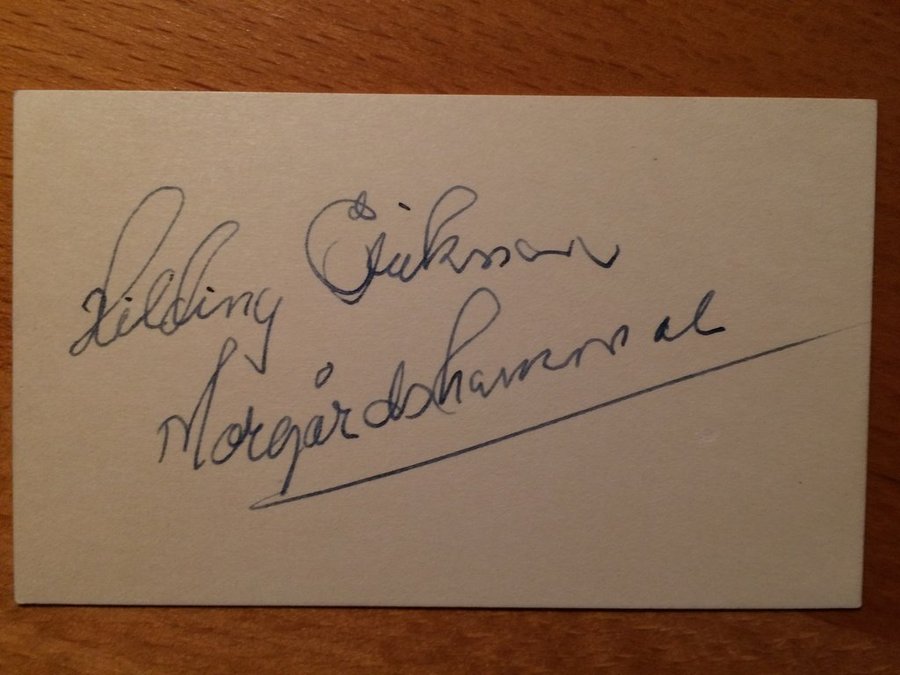 Hilding Eriksson
Morgårdshammar